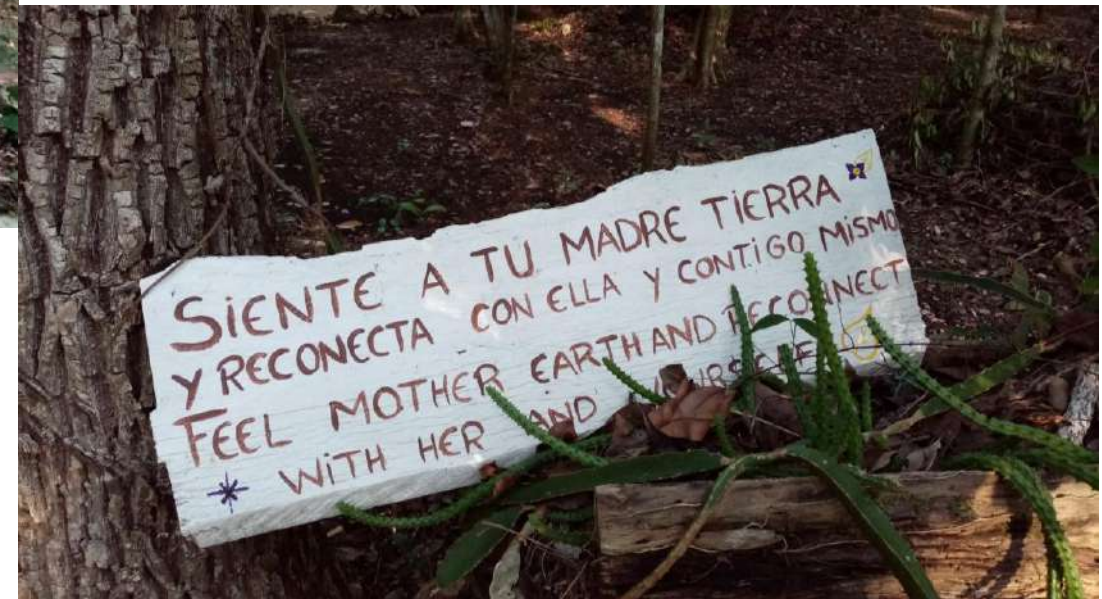 SiENTE A TU MADRE TiERRA
Y RECONECTA CON ELLA Y CONTiGO MiSMO
FEEL MOTHER EARTH AND RECONNECT
WiTH HER AND YOURSELF